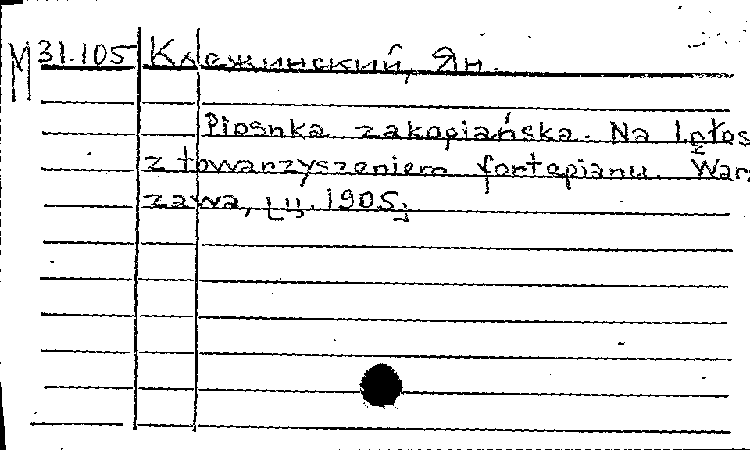 М 31.105 Клежинский, Ян.
Piosnka zakopiańska. Na 1 głos
z towarzyszeniem fortepianu. War-
zawa, [ц. 1905].